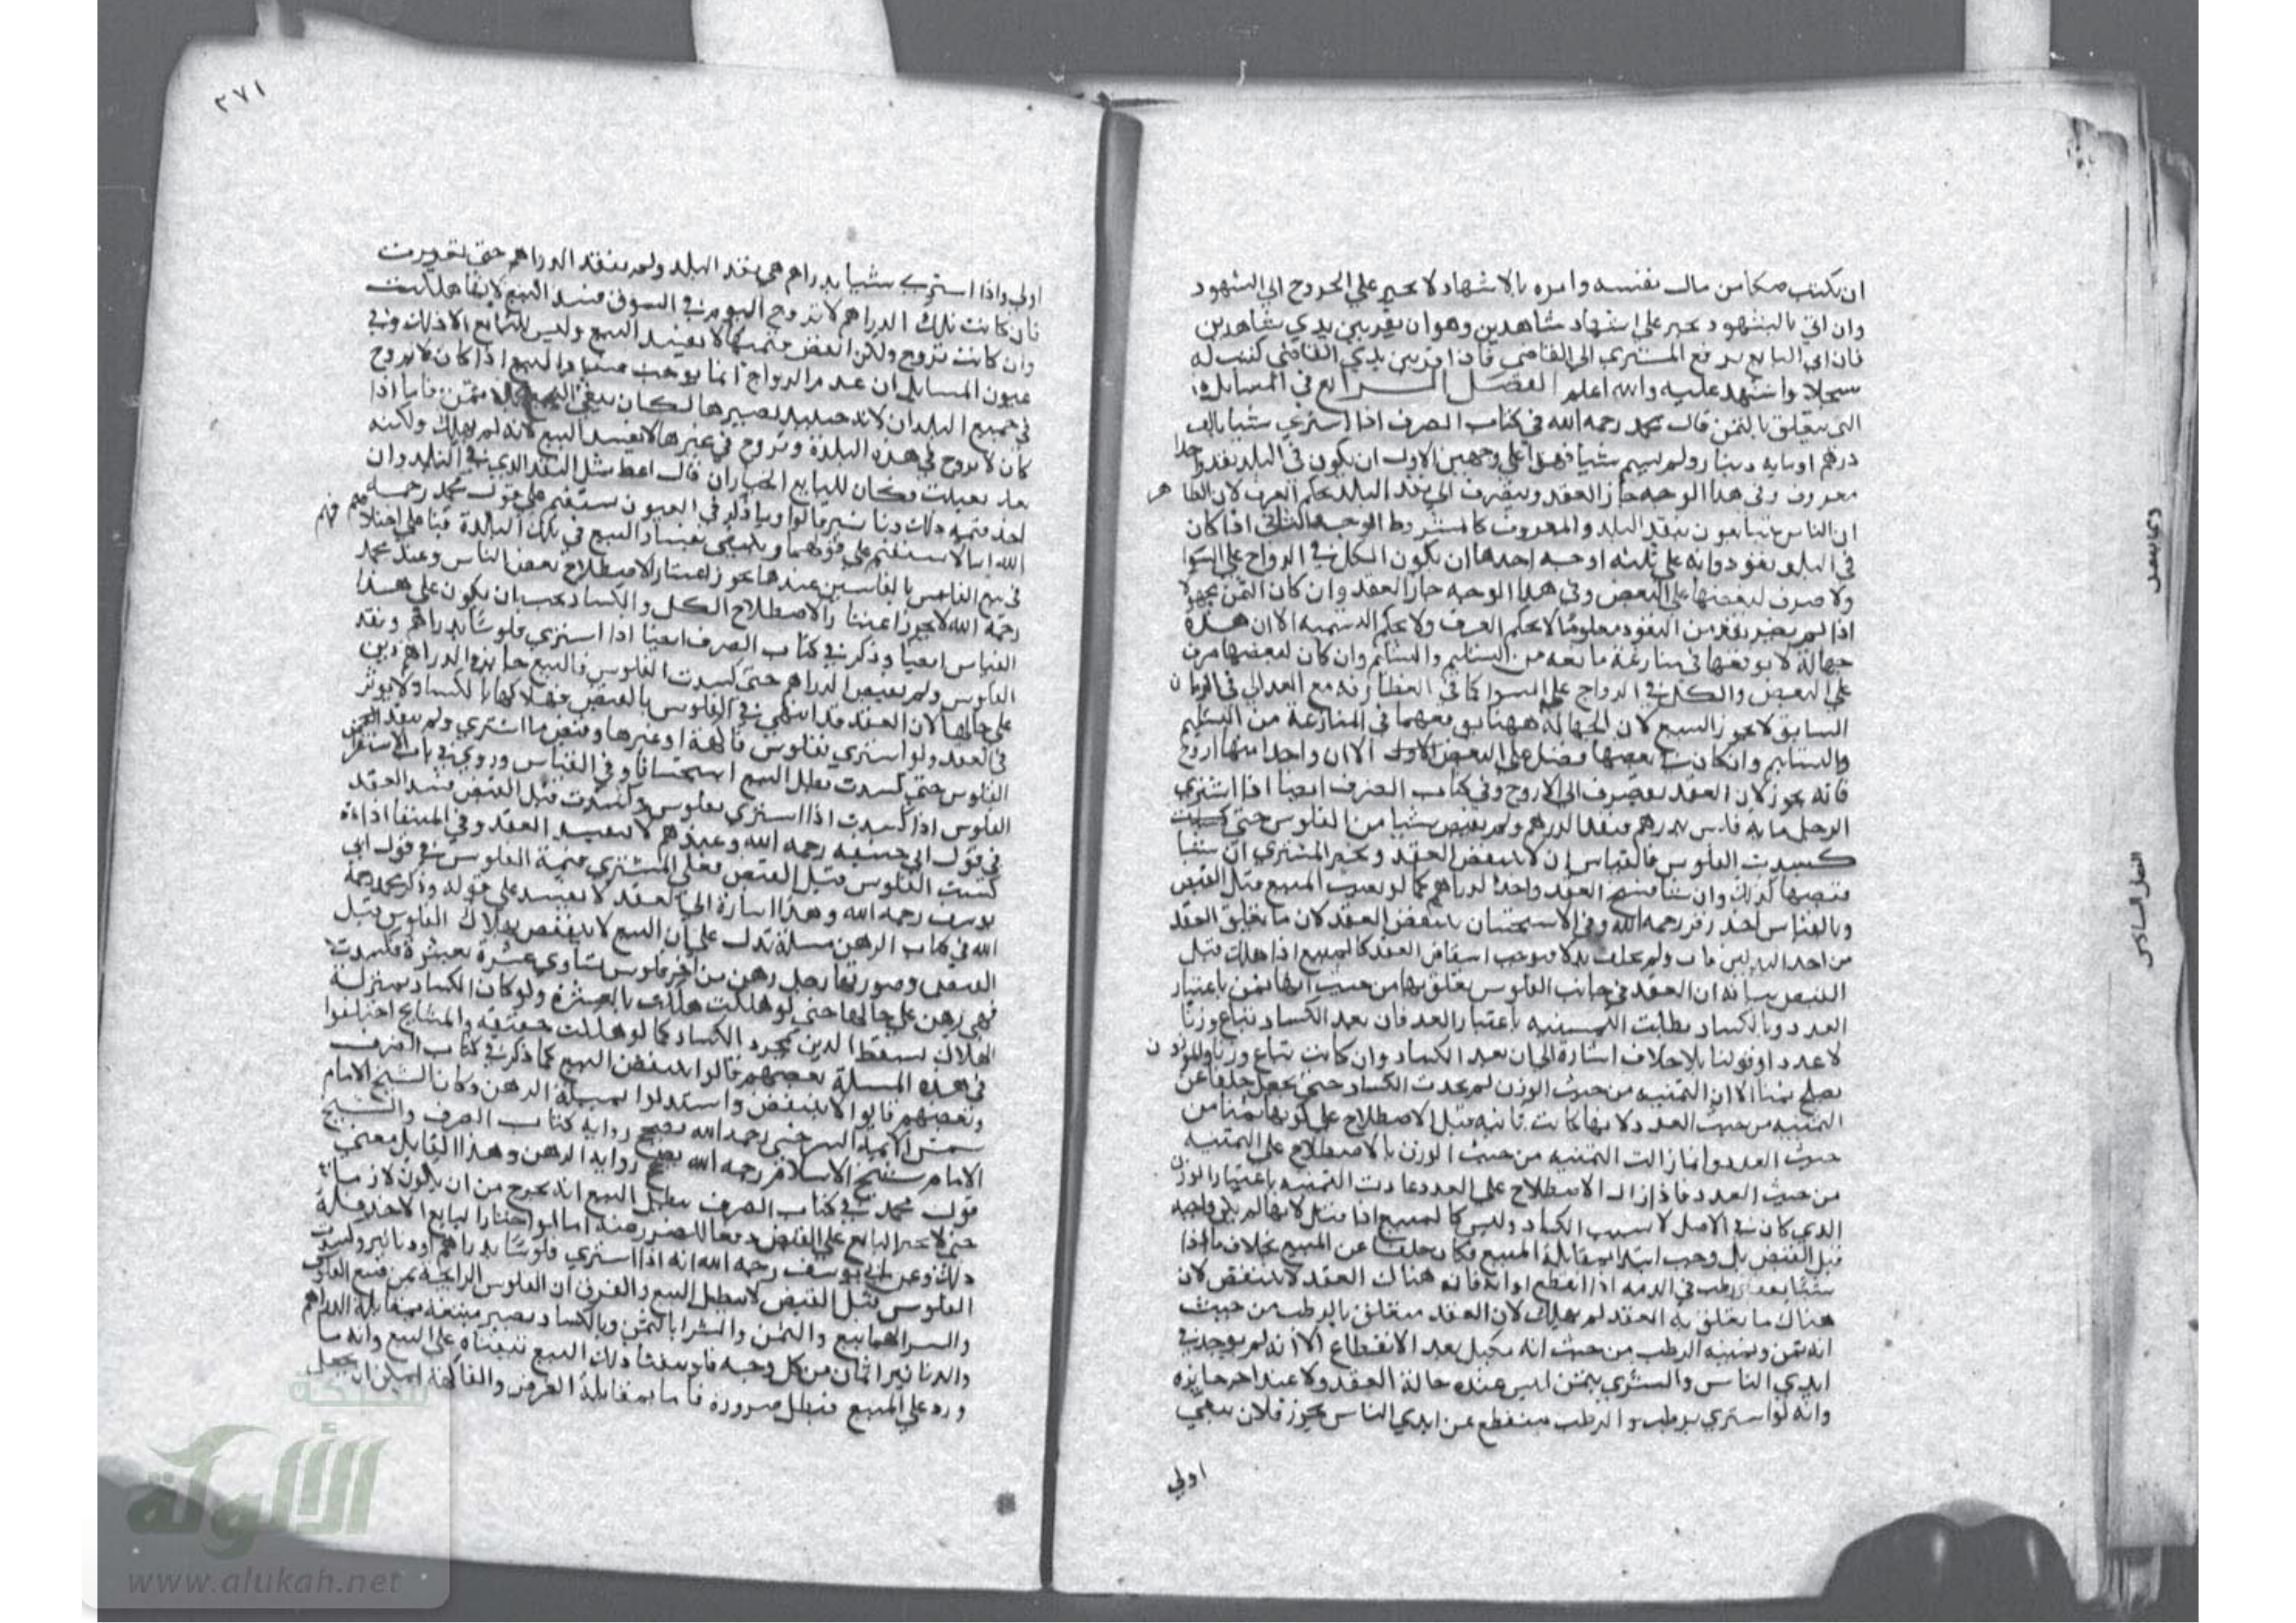 ان يكتب صكا من مال نفسه وامره بالاشهاد لا يجبر علي الخروج الي الشهود
وان اتي بالشهود يجبر علي اشهاد شاهدين وهو ان يقر بين يدي شاهدين
فان ابي البايع يرفع المشتري الي القاضي فاذا اقر بين يدي القاضي كتب له
سجلا واشهد عليه والله اعلم الفصل السابع في المسايل
التي تتعلق بالثمن قال محمد رحمه الله في كتاب الصرف اذا اشتري شيا بالف
درهم او مايه دينار ولم يسم شيا فهذا علي وجهين الاول ان يكون في البلد نقد واحد
معروف وفي هذا الوجه جاز العقد وينصرف الي نقد البلد بحكم العرف لان الظاهر
ان الناس يتبايعون بنقد البلد والمعروف كالمشروط الوجه الثاني اذا كان
في البلد نقود وانه علي ثلثه اوجه احدها ان يكون الكل في الرواج علي السوا
ولا صرف لبعضها علي البعض وفي هذا الوجه جاز العقد وان كان الثمن مجهولا
اذا لم يصر نقد من النقود معلوما لا بحكم العرف ولا بحكم التسميه الا ان هذه
جهالة لا توقعها في منازعة مانعه من التسليم والتسلم وان كان لبعضها صرف
علي البعض والكل في الرواج علي السوا كما في الغطارفه مع العدالي في الزمان
السابق لا يجوز البيع لان الجهالة ههنا توقعهما في المنازعة من التسليم
والتسلم وان كانت بعضها فضل علي البعض الاول الا ان واحدا منها اروج
فانه يجوز لان العقد ينصرف الي الاروج وفي كتاب الصرف ايضا اذا اشتري
الرجل مايه فلس بدرهم ونقد الدرهم ولم يقبض شيا من الفلوس حتي
كسدت الفلوس فالقياس ان لا ينتقض العقد ويخير المشتري ان شا
قبضها كذلك وان شا فسخ العقد واخذ الدراهم كما لو تعيب المبيع قبل القبض
وبالقياس اخذ زفر رحمه الله وفي الاستحسان ينتقض العقد لان ما تعلق العقد
من احد البدلين فات ولم يخلف بدلا فيوجب انتقاض العقد كالمبيع اذا هلك قبل
القبض بيانه ان العقد في جانب الفلوس تعلق بها من حيث انها ثمن باعتبار
العدد وبالكساد بطلت الثمنيه باعتبار العدد فان بعد الكساد تباع وزنا
لا عددا وقولنا بلا خلاف اشارة الي ان بعد الكساد وان كانت تباع وزنا والموزون
يصلح ثمنا الا ان الثمنيه من حيث الوزن لم يحدث الكساد حتي يجعل خلفا عن
الثمنيه من حيث العدد لانها كانت ثابته قبل الاصطلاح علي كونها ثمنا من
حيث العدد وانما زالت الثمنيه من حيث الوزن بالاصطلاح علي الثمنيه
من حيث العدد فاذا زال الاصطلاح علي العدد عادت الثمنيه باعتبار الوزن
الذي كان في الاصل لا بسبب الكساد وليس كالمبيع اذا قتل لانها لم يكن واجبه
قبل القبض بل وجب ابتدا بمقابلة المبيع فكان خلفا عن المبيع بخلاف ما اذا
شيا برطب في الذمه اذا انقطع اوانه فانه هناك العقد لا ينتقض لان
هناك ما تعلق به العقد لم يهلك لان العقد متعلق بالرطب من حيث
انه ثمن وثمنيه الرطب من حيث انه مكيل بعد الانقطاع الا انه لم يوجد في
ايدي الناس والشري بثمن ليس عنده حالة العقد ولا عند اخر جايزه
وانه لو اشتري برطب والرطب منقطع عن ايدي الناس يجوز فلان يبقي
اولي
٢٧١
اولي واذا اشتري شيا بدراهم هي نقد البلد ولم ينقد الدراهم حتي تغيرت
فان كانت تلك الدراهم لا تروج اليوم في السوق فسد البيع لانها هلكت
وان كانت تروج ولكن انتقض قيمتها لا يفسد البيع وليس للبايع الا ذلك وفي
عيون المسايل ان عدم الرواج انما يوجب فساد البيع اذا كان لا يروج
في جميع البلدان لانه حينيذ يصير هالكا ويبقي البيع بلا ثمن فاما اذا
كان لا يروج في هذه البلدة وتروج في غيرها لا يفسد البيع لانه لم يهلك ولكنه
تعيبت فكان للبايع الخيار ان قال اعط مثل النقد الذي في البلد وان
اخذ قيمه ذلك دنانير قالوا وما ذكر في العيون يستقيم علي قول محمد رحمه
الله اما لا يستقيم علي قولهما وينبغي بفساد البيع في تلك البلدة قياسا علي اختلافهم
في بيع الفلس بالفلسين عندهما يجوز اعتبارا لاصطلاح بعض الناس وعند محمد
رحمه الله لا يجوز اعتبارا لاصطلاح الكل والكساد يجب ان يكون علي هذا
القياس ايضا وذكر في كتاب الصرف ايضا اذا اشتري فلوسا بدراهم ونقد
الفلوس ولم يقبض الدراهم حتي كسدت الفلوس فالبيع جايز والدراهم دين
علي حالها لان العقد قد انتهي في الفلوس بالقبض فهلاكها بالكساد لا يوثر
في العقد ولو اشتري بفلوس فاكهة او غيرها وقبض ما اشتري ولم ينقد الثمن
الفلوس حتي كسدت بطل البيع استحسانا وفي القياس وروي في باب الاستقراض
الفلوس اذا كسدت اذا اشتري بفلوس وكسدت قبل القبض فسد العقد
في قول ابي حنيفه رحمه الله وعندهم لا يفسد العقد وفي المنتقا اذا
كسدت الفلوس قبل القبض فعلي المشتري قيمة الفلوس في قول ابي
يوسف رحمه الله وهذا اشارة الي العقد لا يفسد علي قوله وذكر محمد رحمه
الله في كتاب الرهن مسلة تدل علي ان البيع لا ينتقض بهلاك الفلوس قبل
القبض وصورتها رجل رهن من اخر فلوس تساوي عشرة بعشرة فكسدت
فهي رهن علي حالها حتي لو هلكت هلكت بالعشرة ولو كان الكساد بمنزلة
الهلاك لسقط الدين بمجرد الكساد كما لو هلكت حقيقه والمشايخ اختلفوا
في هذه المسلة بعضهم قالوا ينتقض البيع كما ذكر في كتاب الصرف
وبعضهم قالوا لا ينتقض واستدلوا بمسلة الرهن وكان الشيخ الامام
شمس الايمة السرخسي رحمه الله يصحح رواية كتاب الصرف والشيخ
الامام شيخ الاسلام رحمه الله يصحح رواية الرهن وهذا القايل معني
قول محمد في كتاب الصرف يبطل البيع انه يخرج من ان يكون لازما
حتي لا يجبر البايع علي القبض دفعا للضرر عنه اما لو اختار البايع الاخذ فله
ذلك وعن ابي يوسف رحمه الله انه اذا اشتري فلوسا بدراهم او دنانير وكسدت
الفلوس قبل القبض لا يبطل البيع والفرق ان الفلوس الرايجه ثمن
والشرا بالثمن وبالكساد يصير مبيعه بمقابلة الدراهم
والدنانير اثمان من كل وجه فلو بقينا ذلك البيع بقيناه علي البيع وانه ما
ورد علي المبيع فيبطل ضرورة فاما بمقابلة العروض والفاكهة امكن ان يجعل
الفصل السادس
شبكة
الألوكة
www.alukah.net